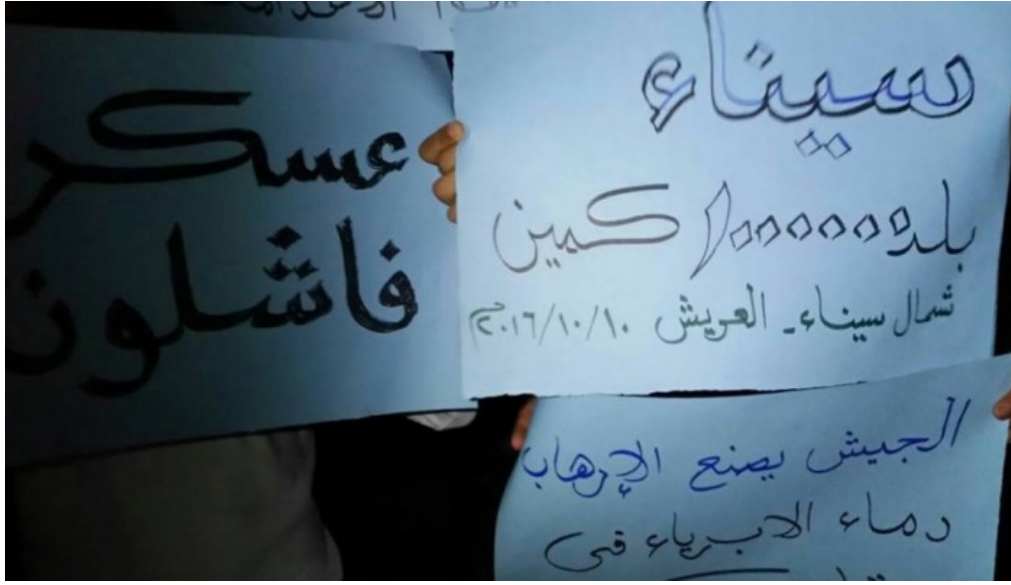 عسكر
فاشلون
سيناء
بلد 1000000 كمين
شمال سيناء - العريش ١٠/١٠/٢٠١٦م
الجيش يصنع الإرهاب
دماء الابرياء فى